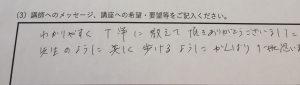 (3) 講師へのメッセージ、講座への希望・要望等をご記入ください。
わかりやすく丁寧に教えて頂きありがとうございました
先生のように美しく歩けるようにがんばり